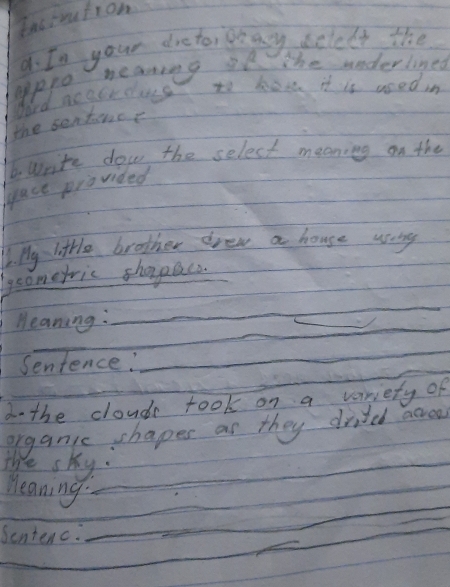 Instrution
a. In your dictoionary select the
appro meaning of the underlined
word according to how it is used in
the sentence
b. Write dow the select meaning on the
space provided
1. My little brother drew a house using
geometric shapes.
Meaning:
Sentence:
2. the clouds took on a variety of
organic shapes as they drited across
the sky.
Meaning:
Sentenc: